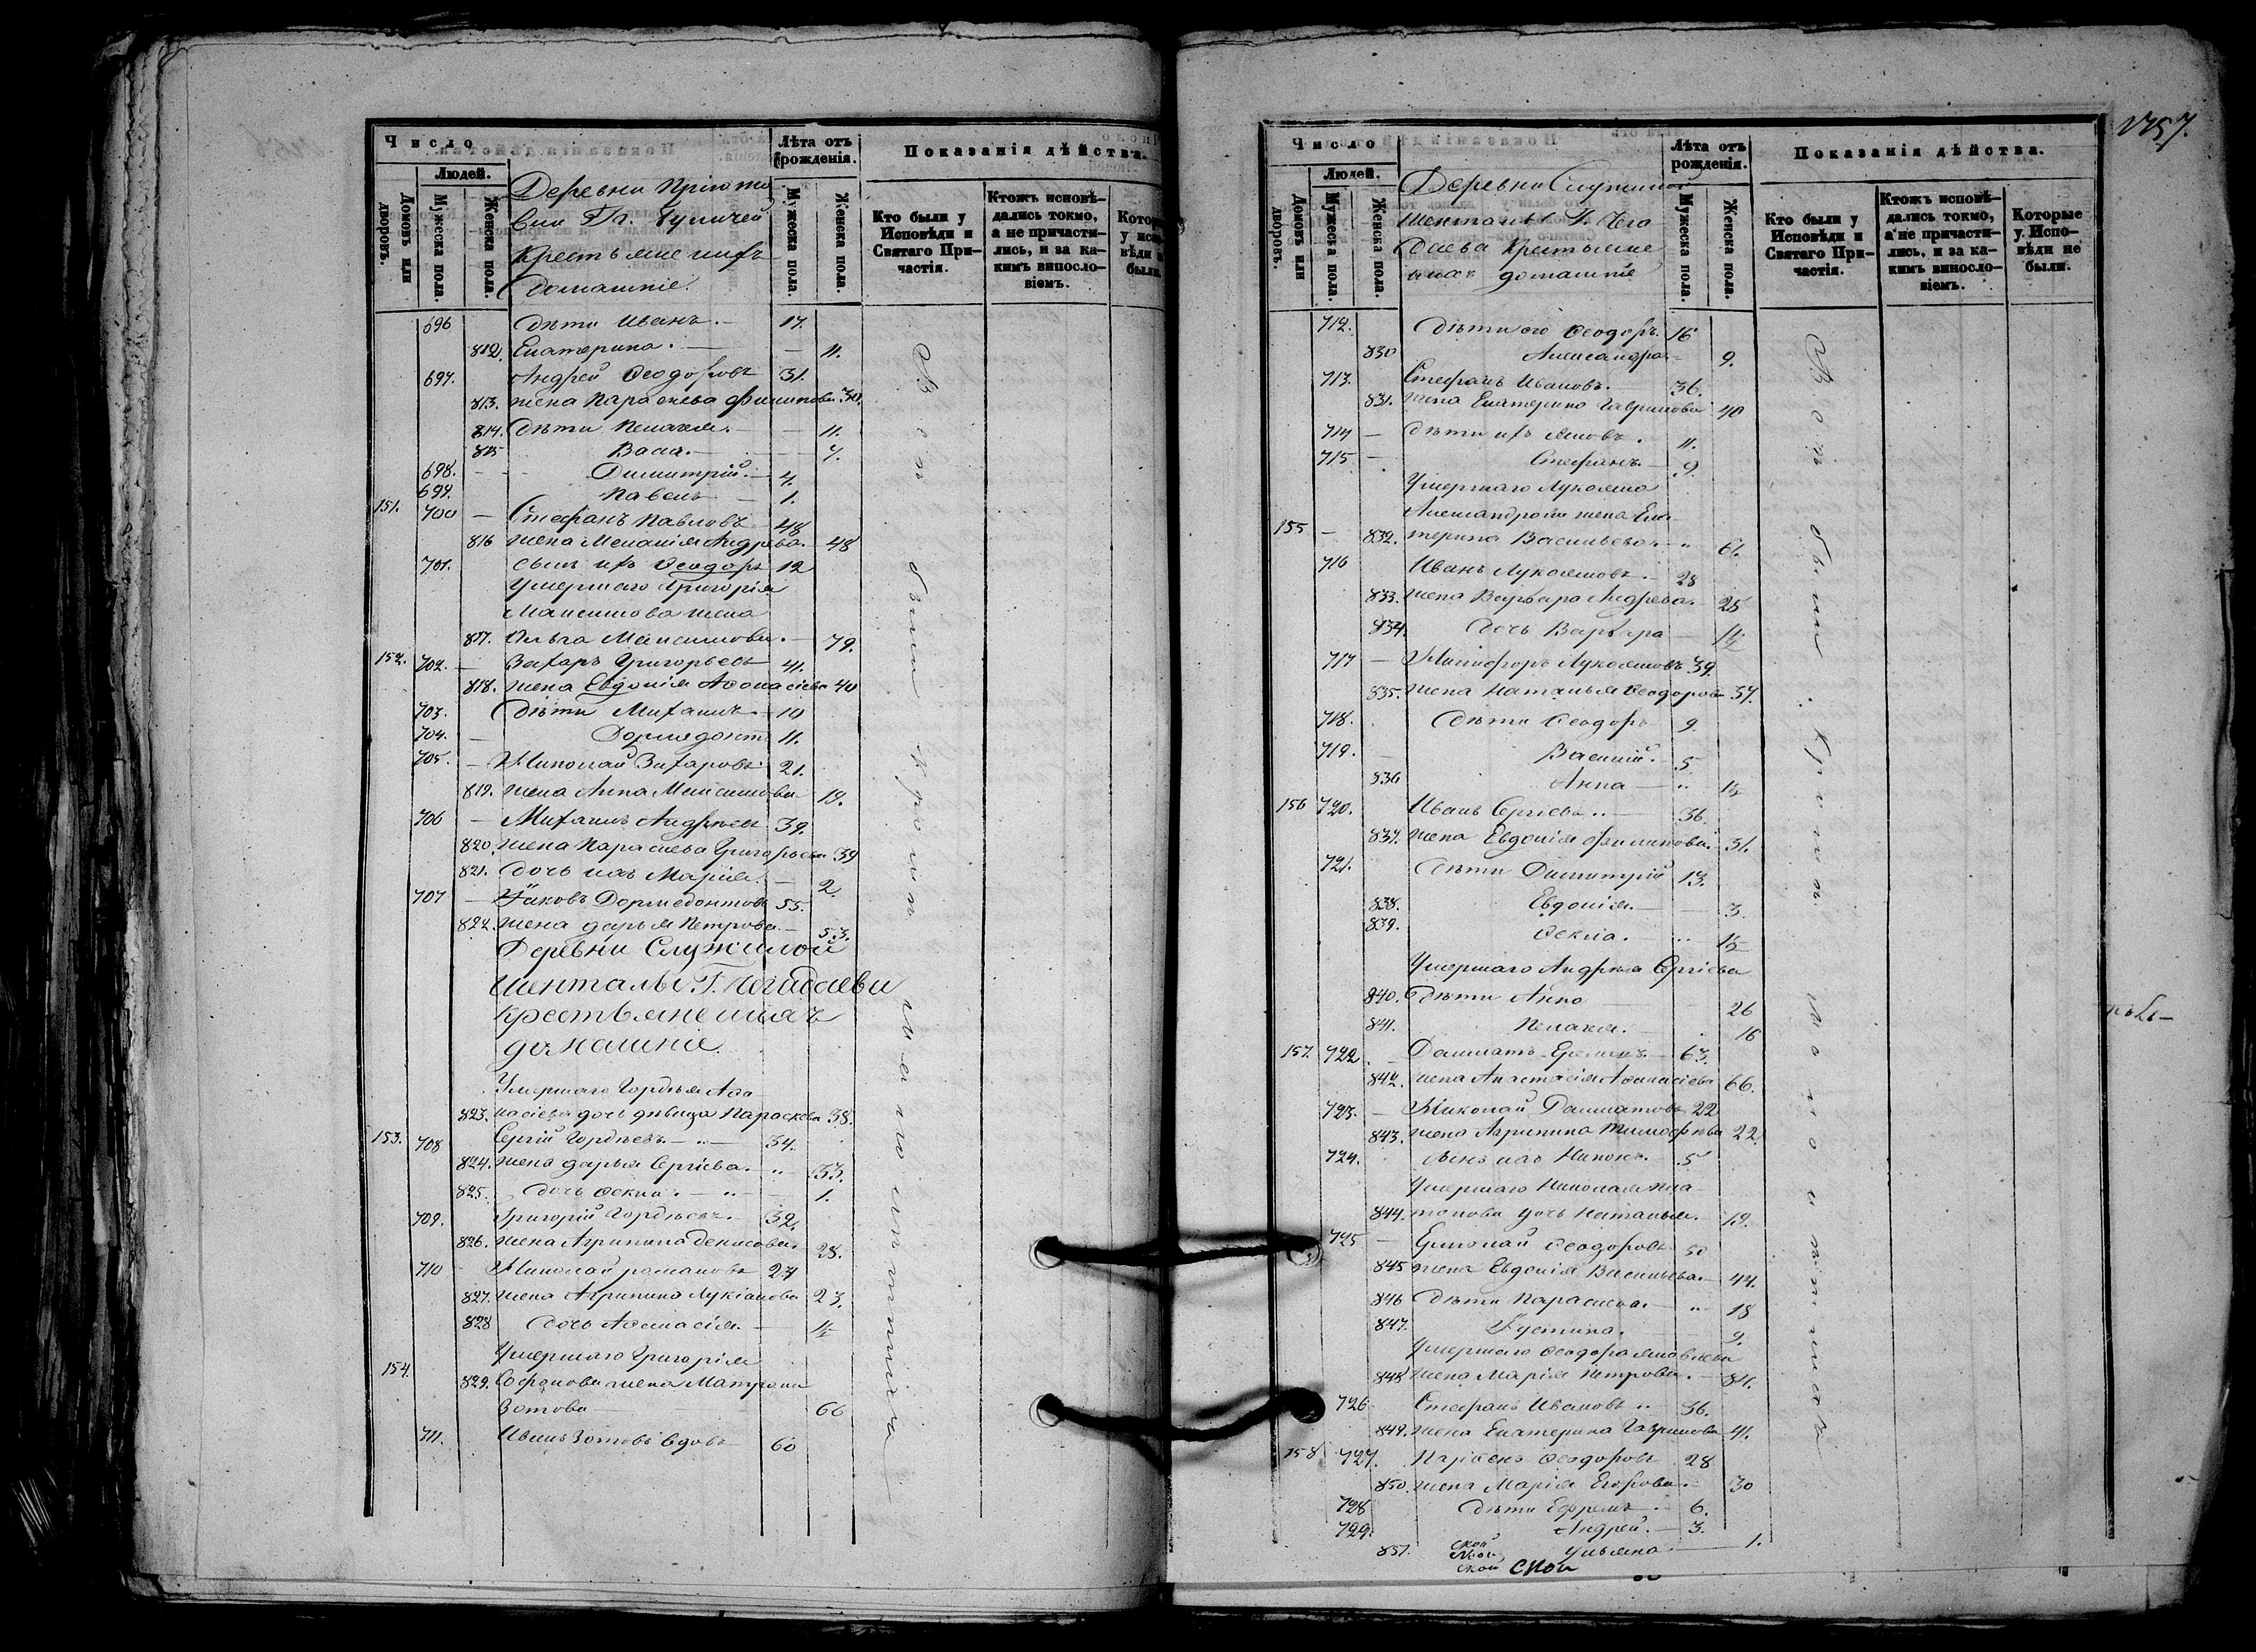 Число
Людей.
Домовъ или дворовъ.
Мужеска пола.
Женска пола.
Деревни
Крестьяне ихъ
Домашніе.
Лѣта отъ рожденія.
Мужеска пола.
Женска пола.
Показанія дѣйства.
Кто были у Исповѣди и Святаго Причастія.
Ктожъ исповѣдались токмо, а не причастились, и за какимъ винословіемъ.
696 Дѣти Иванъ. 17.
812. Екатерина. 11.
697. Андрей Ѳеодоровъ 31.
813. жена Параскева Филипова 30.
814. Дѣти Пелагея. 11.
815 Васса. 7.
698. Димитрій. 4.
699. Павелъ 1.
151. 700 Стефанъ Павловъ 48
816 жена Меланія Андрева. 48
701. сынъ ихъ Ѳеодоръ 12
Умершаго Григорія
Максимова жена
817. Ольга Максимова. 79.
152. 702. Захаръ Григорьевъ 41.
818. жена Евдокія Аѳонасіева 40
703. Дѣти Михаилъ 10
704. Дормедонтъ 11.
705. Николай Захаровъ 21.
819. жена Анна Максимова 19.
706 Михаилъ Андреевъ 39.
820. жена Параскева Григорьева 39
821. дочь ихъ Марія. 2.
707 Яковъ Дормедонтовъ 55.
822. жена Дарья Петрова. 53.
Деревни Служилой
Шенталы Г. Чегадаева
Крестьяне ихъ
домашніе.
Умершаго Гордѣя Аѳо
823. насіева дочь дѣвица Параскева 38.
153. 708 Сергій Гордѣевъ 34.
824. жена Дарья Сергіева. 33.
825. дочь Ѳекла. 1.
709. Григорій Гордѣевъ. 32.
826. жена Агрипина Денисова. 28.
710 Николай Романовъ 27
827. жена Агрипина Лукіанова 23.
828 дочь Аѳонасія. 1/2
154. Умершаго Григорія
829. Софонова жена Матрона
Зотова 66
711. Иванъ Зотовъ вдовъ 60
Вси были Кромѣ малолѣтнихъ
1757.
Число
Людей.
Домовъ или дворовъ.
Мужеска пола.
Женска пола.
Деревни Служилой
Шенталы Г. Чега
даева Крестьяне
ихъ домашніе
Лѣта отъ рожденія.
Мужеска пола.
Женска пола.
Показанія дѣйства.
Кто были у Исповѣди и Святаго Причастія.
Ктожъ исповѣдались токмо, а не причастились, и за какимъ винословіемъ.
Которые у Исповѣди не были.
712. Дѣти его Ѳеодоръ. 16
830 Александра 9.
713. Стефанъ Ивановъ. 36.
831. жена Екатерина Гаврилова 40
714 Дѣти ихъ Яковъ. 11.
715 Стефанъ. 9.
Умершаго Лукояна
Александрова жена Ека
155 832. терина Васильева 61.
716 Иванъ Лукояновъ. 28
833. жена Варвара Андрева. 25
834. дочь Варвара 1 1/2
717 Никифоръ Лукояновъ 39.
835. жена Наталья Ѳеодорова 37.
718. Дѣти Ѳеодоръ 9.
719. Василій. 5.
836 Анна 1/2
156 720. Иванъ Сергіевъ 36.
837. жена Евдокія Филипова. 31.
721. Дѣти Димитрій 13.
838. Евдокія. 3.
839. Ѳекла. 1/2
Умершаго Андрея Сергіева
840. Дѣти Анна 26
841. Пелагея. 16
157. 722 Далматъ Ереминъ. 63.
842. жена Анастасія Аѳанасіева 66.
723. Николай Далматовъ 22
843. жена Агрипина Тимофѣева 22.
724. сынъ ихъ Никонъ. 5
Умершаго Николая Пла
844. тонова дочь Наталья. 19.
725 Ермолай Ѳеодоровъ 50
845 жена Евдокія Васильева. 44.
846 Дѣти Параскева. 18
847. Устина. 9.
Умершаго Ѳеодора Яковлева
848 жена Марія Петрова. 81.
726 Стефанъ Ивановъ 36.
849. жена Екатерина Гаврилова 41.
158. 727. Парѳенъ Ѳеодоровъ 28
850. жена Марія Егорова. 30
728 Дѣти Ефремъ 6.
729. Андрей. 3.
851. Ульяна 1.
ской
ской
ской
Вси были. Кромѣ малолѣтнихъ